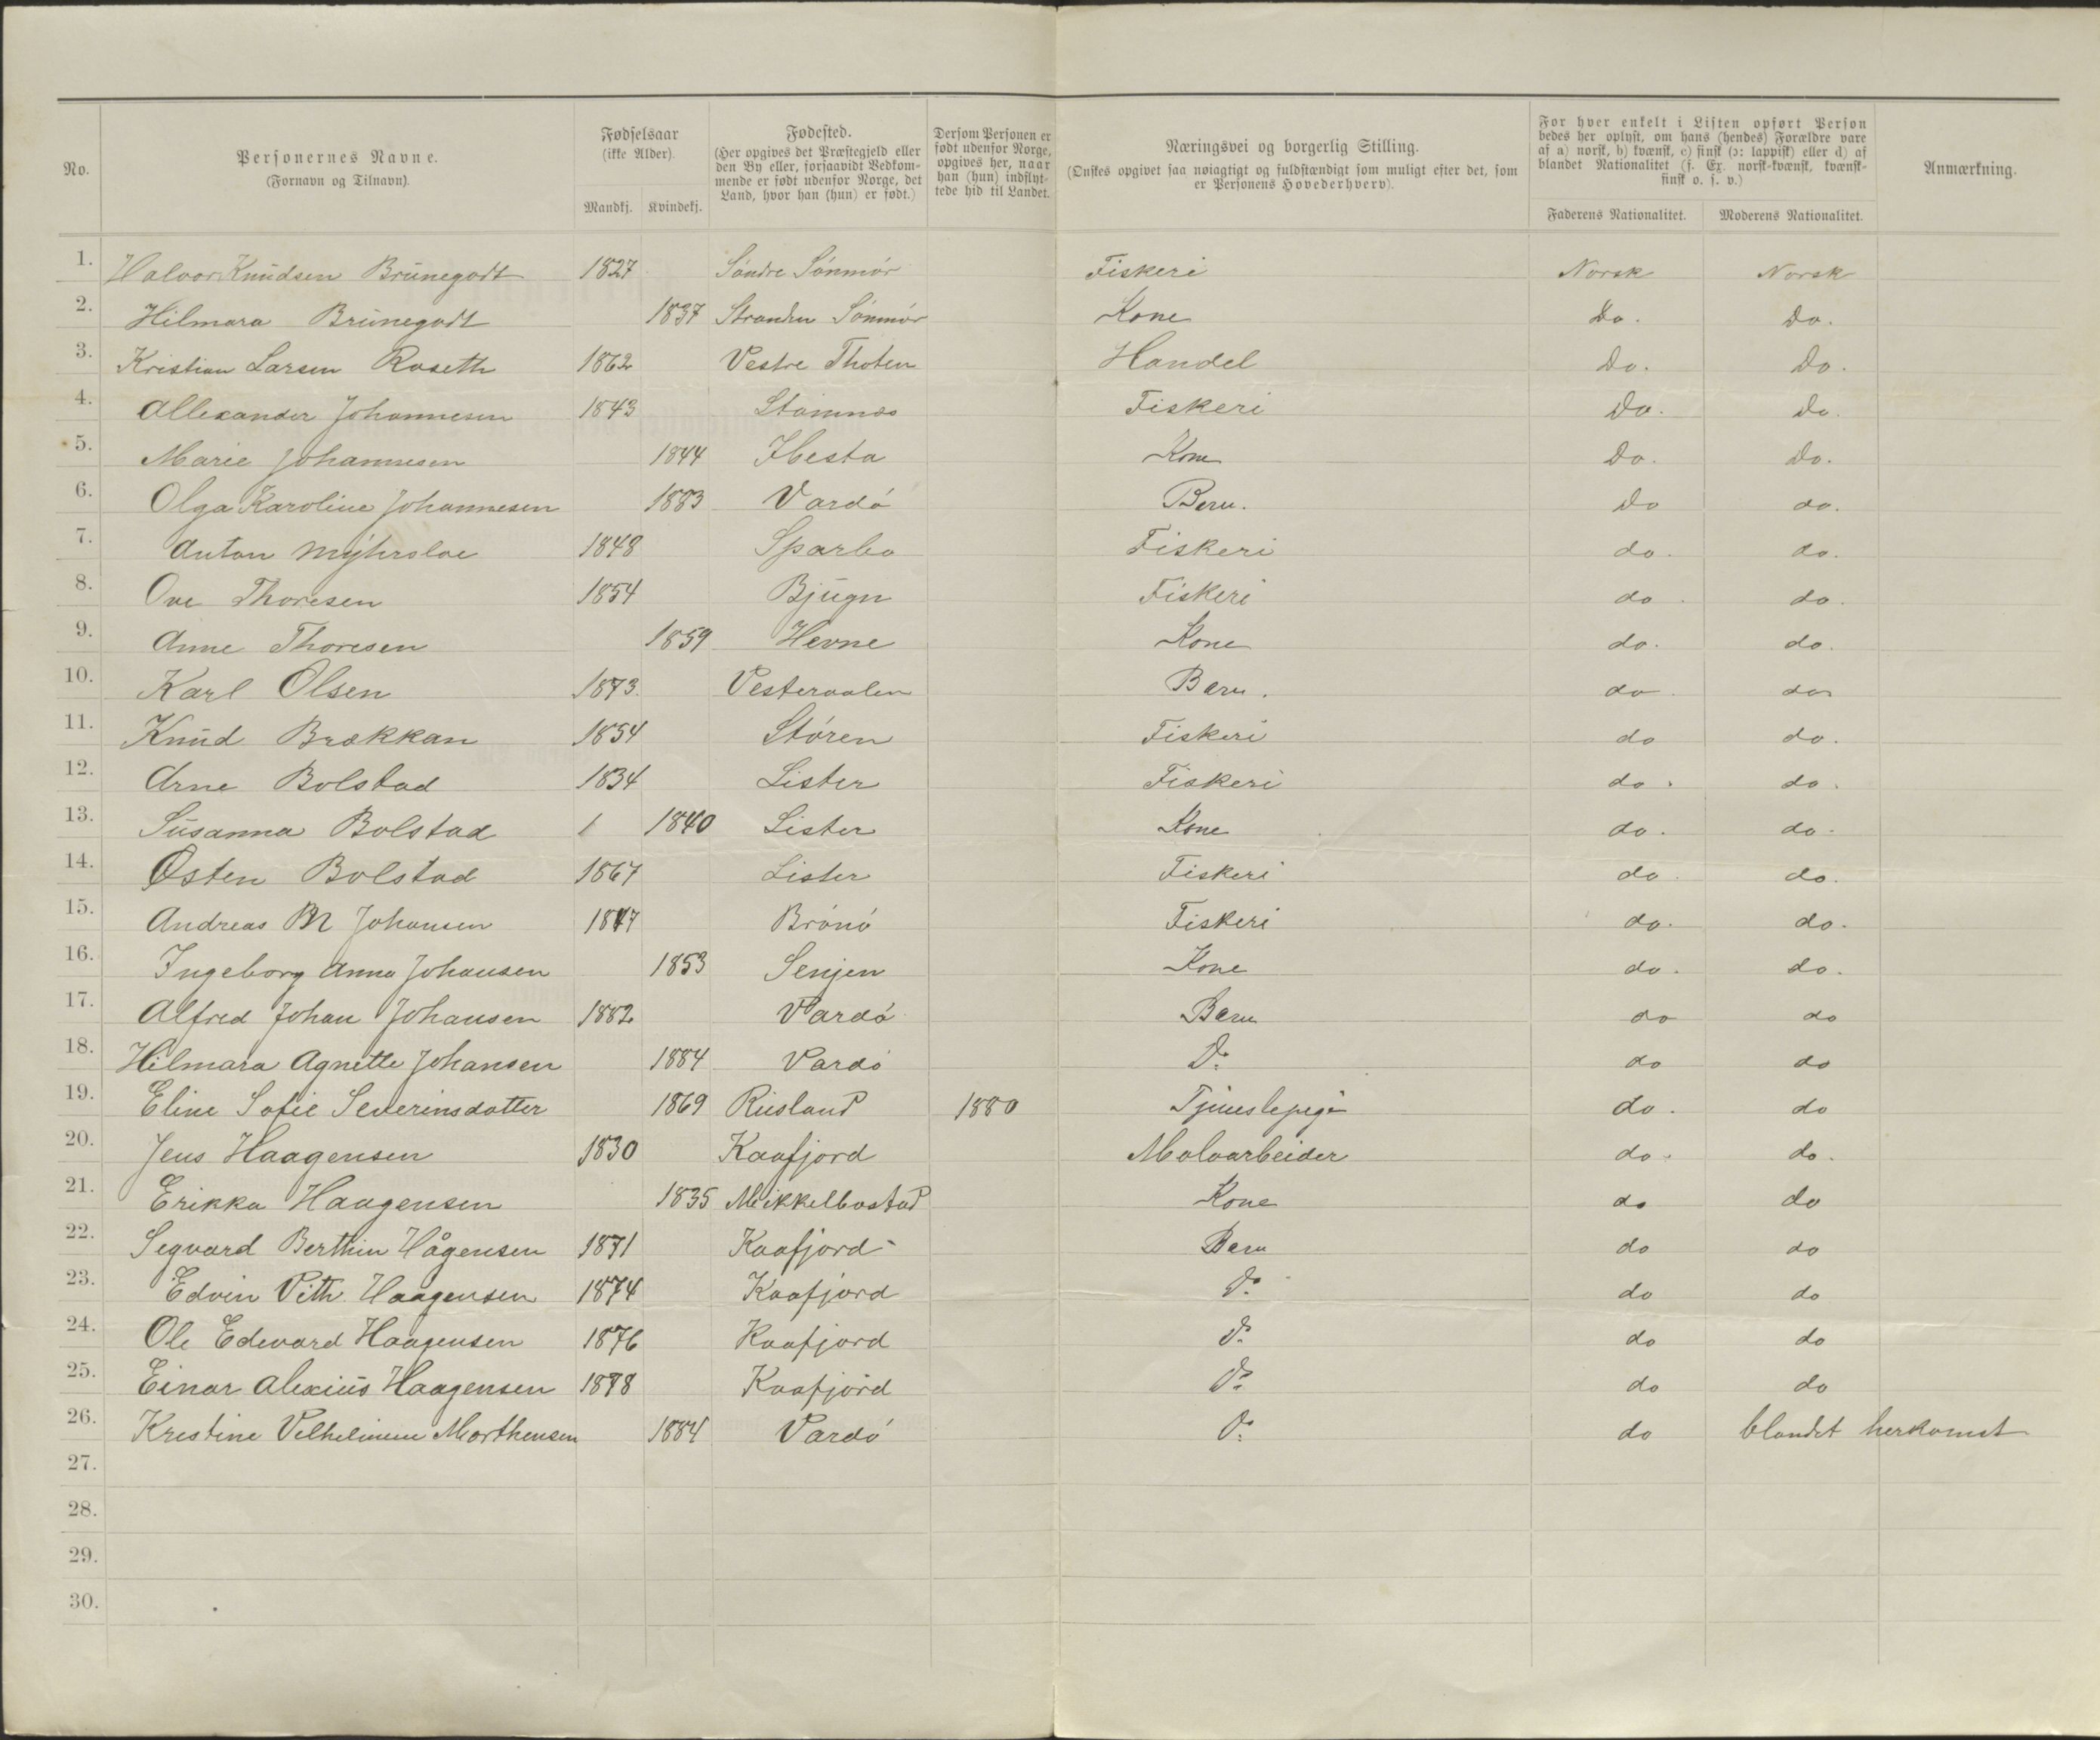 No.
Personernes Navne.
(Fornavn og Tilnavn).
Fødselsaar
(ikke Alder).
Mandkj. Kvindekj.
Fødested.
(Her opgives det Præstegjeld eller
den By eller, forsaavidt Vedkom-
mende er født udenfor Norge, det
Land, hvor han (hun) er født.)
Dersom Personen er
født udenfor Norge,
opgives her, naar
han (hun) indflyt-
tede hid til Landet.
Næringsvei og borgerlig Stilling.
(Ønskes opgivet saa nøiagtigt og fuldstændigt som muligt efter det, som
er Personens Hovederhverv).
For hver enkelt i Listen opført Person
bedes her oplyst, om hans (hendes) Forældre vare
af a) norsk, b) kvænsk, c) finsk (ɔ: lappisk) eller d) af
blandet Nationalitet (f. Ex. norsk-kvænsk, kvænsk-
finsk o. s. v.)
Faderens Nationalitet. Moderens Nationalitet.
Anmærkning.
1. Halvor Knudsen Brünegodt 1827 Søndre Sónmór Fiskeri Norsk Norsk
2. Hilmara Brünegodt 1837 Stranden Sónmór Kone Do. Do.
3. Kristian Larsen Roseth 1862 Vestre Thoten Handel Do. Do.
4. Allexander Johannesen 1843 Stamnes Fiskeri Do. Do.
5. Marie Johannesen 1844 Ibesta Kone Do. Do.
6. Olga Karoline Johannesen 1883 Vardó Barn. Do do.
7. Anton Myhrsloe 1848 Sparbo Fiskeri do. do.
8. Ove Thoresen 1854 Bjügn Fiskeri do. do.
9. Anne Thoresen 1859 Hevne Kone do. do.
10. Karl Olsen 1873. Vesteraalen Barn. do. do
11. Knüd Brækkan 1854 Stóren Fiskeri do do.
12. Arne Bolstad 1834 Lister Fiskeri do. do.
13. Susanna Bolstad 1840 Lister Kone do. do.
14. Østen Bolstad 1867 Lister Fiskeri do. do.
15. Andreas M Johansen 1847 Brónó Fiskeri do. do.
16. Ingeborg Anna Johansen 1853 Senjen Kone do. do.
17. Alfred Johan Johansen 1882 Vardó Barn do do
18. Hilmara Agnette Johansen 1884 Vardó Do do do
19. Eline Sofie Severinsdatter 1869 Rüsland 1880 Tjenestepige do. do
20. Jens Haagensen 1830 Kaafjord Moloarbeider do. do.
21. Erikka Haagensen 1835 Mikkelbostad Kone do do
22. Segvard Berthin Hågensen 1871 Kaafjord Barn do do
23. Edvin Vith. Haagensen 1874 Kaafjord Do do do
24. Ole Edevard Haagensen 1876 Kaafjord Do do do
25. Einar Alexius Haagensen 1878 Kaafjord Do do do
26. Kristine Vilhelmine Morthensen 1884 Vardó Do do blandet herkomst
27.
28.
29.
30.